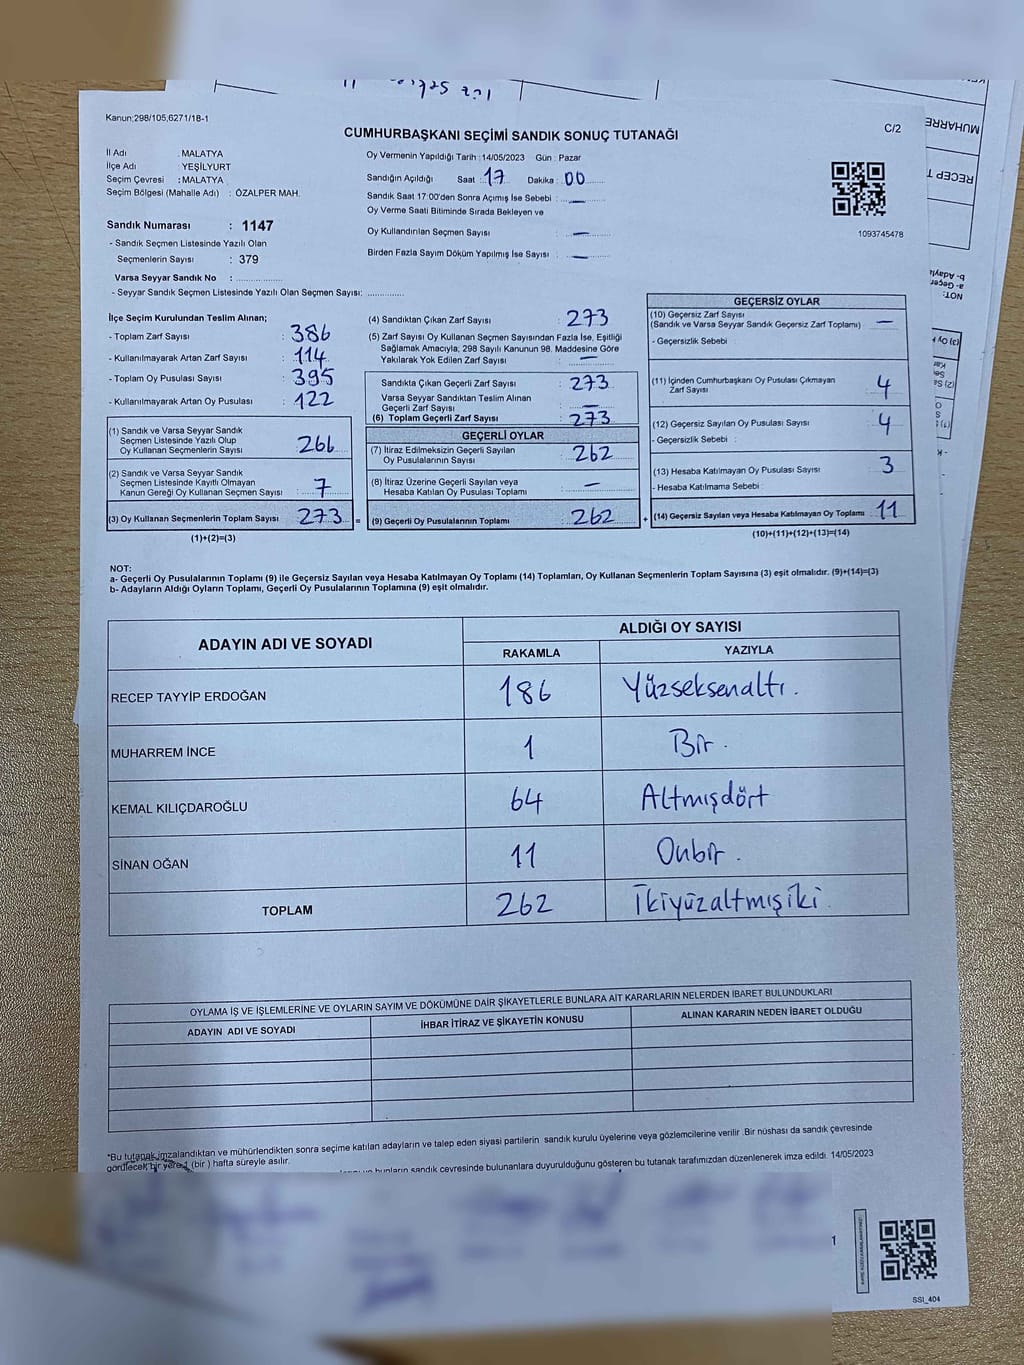 Kanun;298/105,6271/18-1
CUMHURBAŞKANI SEÇİMİ SANDIK SONUÇ TUTANAĞI
C/2
İl Adı : MALATYA
İlçe Adı : YEŞİLYURT
Seçim Çevresi : MALATYA
Seçim Bölgesi (Mahalle Adı) : ÖZALPER MAH.
Oy Vermenin Yapıldığı Tarih : 14/05/2023 Gün : Pazar
Sandığın Açıldığı Saat : 17 Dakika : 00
Sandık Saat 17:00'den Sonra Açımış İse Sebebi : —
Oy Verme Saati Bitiminde Sırada Bekleyen ve
Oy Kullandırılan Seçmen Sayısı : —
Birden Fazla Sayım Döküm Yapılmış İse Sayısı : —
1093745478
Sandık Numarası : 1147
- Sandık Seçmen Listesinde Yazılı Olan
Seçmenlerin Sayısı : 379
Varsa Seyyar Sandık No :
- Seyyar Sandık Seçmen Listesinde Yazılı Olan Seçmen Sayısı:
İlçe Seçim Kurulundan Teslim Alınan;
- Toplam Zarf Sayısı : 386
- Kullanılmayarak Artan Zarf Sayısı : 114
- Toplam Oy Pusulası Sayısı : 395
- Kullanılmayarak Artan Oy Pusulası : 122
(1) Sandık ve Varsa Seyyar Sandık
Seçmen Listesinde Yazılı Olup
Oy Kullanan Seçmenlerin Sayısı : 266
(2) Sandık ve Varsa Seyyar Sandık
Seçmen Listesinde Kayıtlı Olmayan
Kanun Gereği Oy Kullanan Seçmen Sayısı : 7
(3) Oy Kullanan Seçmenlerin Toplam Sayısı : 273
(1)+(2)=(3)
(4) Sandıktan Çıkan Zarf Sayısı : 273
(5) Zarf Sayısı Oy Kullanan Seçmen Sayısından Fazla İse, Eşitliği
Sağlamak Amacıyla, 298 Sayılı Kanunun 98. Maddesine Göre
Yakılarak Yok Edilen Zarf Sayısı : —
Sandıkta Çıkan Geçerli Zarf Sayısı : 273
Varsa Seyyar Sandıktan Teslim Alınan
Geçerli Zarf Sayısı : —
(6) Toplam Geçerli Zarf Sayısı : 273
GEÇERLİ OYLAR
(7) İtiraz Edilmeksizin Geçerli Sayılan
Oy Pusulalarının Sayısı : 262
(8) İtiraz Üzerine Geçerli Sayılan veya
Hesaba Katılan Oy Pusulası Toplamı : —
= (9) Geçerli Oy Pusulalarının Toplamı : 262
GEÇERSİZ OYLAR
(10) Geçersiz Zarf Sayısı
(Sandık ve Varsa Seyyar Sandık Geçersiz Zarf Toplamı) : —
- Geçersizlik Sebebi :
(11) İçinden Cumhurbaşkanı Oy Pusulası Çıkmayan
Zarf Sayısı : 4
(12) Geçersiz Sayılan Oy Pusulası Sayısı : 4
- Geçersizlik Sebebi :
(13) Hesaba Katılmayan Oy Pusulası Sayısı : 3
- Hesaba Katılmama Sebebi :
+ (14) Geçersiz Sayılan veya Hesaba Katılmayan Oy Toplamı : 11
(10)+(11)+(12)+(13)=(14)
NOT:
a- Geçerli Oy Pusulalarının Toplamı (9) ile Geçersiz Sayılan veya Hesaba Katılmayan Oy Toplamı (14) Toplamları, Oy Kullanan Seçmenlerin Toplam Sayısına (3) eşit olmalıdır. (9)+(14)=(3)
b- Adayların Aldığı Oyların Toplamı, Geçerli Oy Pusulalarının Toplamına (9) eşit olmalıdır.
ADAYIN ADI VE SOYADI
ALDIĞI OY SAYISI
RAKAMLA YAZIYLA
RECEP TAYYİP ERDOĞAN 186 Yüzseksenaltı.
MUHARREM İNCE 1 Bir.
KEMAL KILIÇDAROĞLU 64 Altmışdört
SİNAN OĞAN 11 Onbir.
TOPLAM 262 İkiyüzaltmışiki.
OYLAMA İŞ VE İŞLEMLERİNE VE OYLARIN SAYIM VE DÖKÜMÜNE DAİR ŞİKAYETLERLE BUNLARA AİT KARARLARIN NELERDEN İBARET BULUNDUKLARI
ADAYIN ADI VE SOYADI İHBAR İTİRAZ VE ŞİKAYETİN KONUSU ALINAN KARARIN NEDEN İBARET OLDUĞU
*Bu tutanak imzalandıktan ve mühürlendikten sonra seçime katılan adayların ve talep eden siyasi partilerin sandık kurulu üyelerine veya gözlemcilerine verilir .Bir nüshası da sandık çevresinde
görülecek bir yere 1 (bir ) hafta süreyle asılır.
bunların sandık çevresinde bulunanlara duyurulduğunu gösteren bu tutanak tarafımızdan düzenlenerek imza edildi. 14/05/2023
1
SSI_404
MUHARRE
RECEP T
NOT: